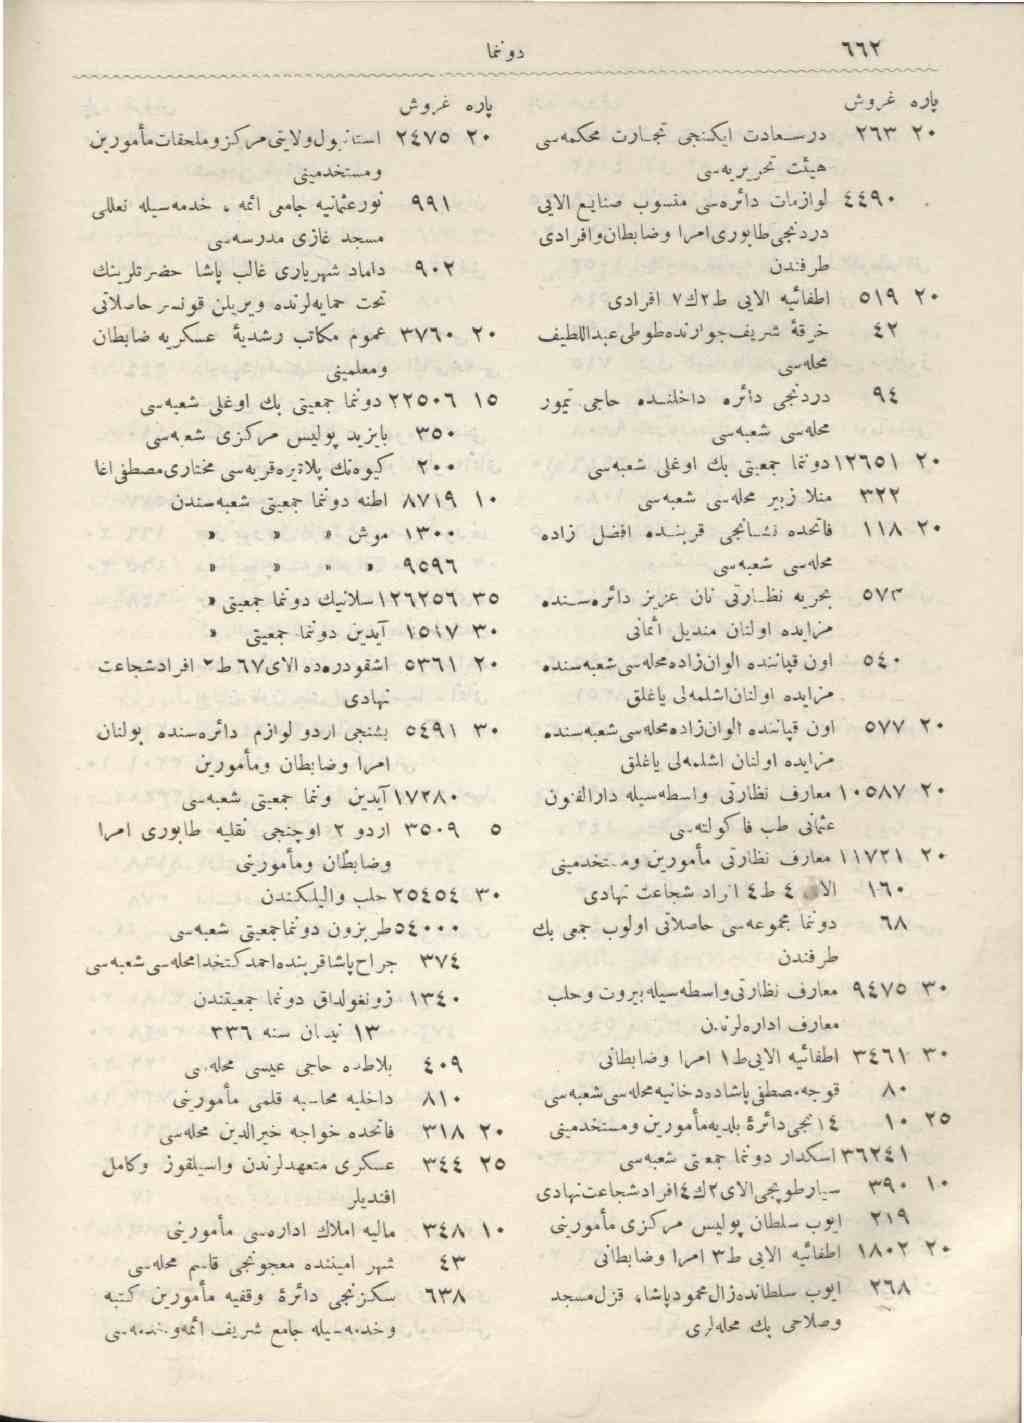 ٦٦٢
دونما
پاره غروش
٢٠ ٢٦٣ درسعادت ایکنجی تجارت محکمه‌سی
هیئت تحریریه‌سی
٤٤٩٠ لوازمات دائره‌سی منسوب صنایع الایی
دردنجی طابوری امرا وضابطان وافرادی
طرفندن
٢٠ ٥١٩ اطفائیه الایی ط٢ك٧ افرادی
٤٢ خرقهٔ شریف جوارنده طوطی عبداللطیف
محله‌سی
٩٤ دردنجی دائره داخلنده حاجی تیمور
محله‌سی شعبه‌سی
٢٠ ١٢٦٥١ دونما جمعیتی بك اوغلی شعبه‌سی
٣٢٢ منلا زبیر محله‌سی شعبه‌سی
٢٠ ١١٨ فاتحده نشانجی قربنده افضل زاده
محله‌سی شعبه‌سی
٥٧٣ بحریه نظارتی نان عزیز دائره‌سنده
مزایده اولنان مندیل اثمانی
٥٤٠ اون قپاننده الوان‌زاده محله‌سی شعبه‌سنده
مزایده اولنان اشلمه‌لی یاغلق
٢٠ ٥٧٧ اون قپاننده الوان‌زاده محله‌سی شعبه‌سنده
مزایده اولنان اشلمه‌لی یاغلق
٢٠ ١٠٥٨٧ معارف نظارتی واسطه‌سیله دارالفنون
عثمانی طب فاکولته‌سی
٢٠ ١١٧٢١ معارف نظارتی مأمورین ومستخدمینی
١٦٠ الای ٤ ط٤ افراد شجاعت نهادی
٦٨ دونما مجموعه‌سی حاصلاتی اولوب جمعی بك
طرفندن
٣٠ ٩٤٧٥ معارف نظارتی واسطه‌سیله بیروت وحلب
معارف اداره‌لرندن
٣٠ ٣٤٦١ اطفائیه الایی ط١ امرا وضابطانی
٨٠ قوجه مصطفی پاشاده دخانیه محله‌سی شعبه‌سی
٢٥ ١٠ ١٤نجی دائرهٔ بلدیه مأمورین ومستخدمینی
٣٦٢٤١ اسکدار دونما جمعتی شعبه‌سی
١٠ ٣٩٠ سیار طوپجی الای ٢ك٤ افراد شجاعت نهادی
٢١٩ ایوب سلطان پولیس مرکزی مأمورینی
٢٠ ١٨٠٢ اطفائیه الایی ط٣ امرا وضابطانی
٢٦٨ ایوب سلطانده زال محمود پاشا، قزل مسجد
وصلاحی بك محله‌لری
پاره غروش
٢٠ ٢٤٧٥ استانبول ولایتی مرکز وملحقات مأمورین
ومستخدمینی
٩٩١ نورعثمانیه جامعی ائمه ، خدمه‌سیله نعللی
مسجد غازی مدرسه‌سی
٩٠٢ داماد شهریاری غالب پاشا حضرتلرینك
تحت حمایه‌لرنده ویریلن قونسر حاصلاتی
٢٠ ٣٧٦٠ عموم مکاتب رشدیهٔ عسکریه ضابطان
ومعلمینی
١٥ ٢٢٥٠٦ دونما جمعیتی بك اوغلی شعبه‌سی
٣٥٠ بایزید پولیس مرکزی شعبه‌سی
٢٠٠ کیوه‌نك قریه‌سی مختاری مصطفی اغا
١٠ ٨٧١٩ اطنه دونما جمعیتی شعبه‌سندن
١٣٠٠ موش » » »
٩٥٩٦ » » » »
٣٥ ١٢٦٢٥٦ سلانیك دونما جمعیتی »
٣٠ ١٥١٧ آیدین دونما جمعیتی »
٢٠ ٥٣٦١ اشقودره‌ده الای ٦٧ ط٢ افراد شجاعت
نهادی
٣٠ ٥٤٩١ بشنجی اردو لوازم دائره‌سنده بولنان
امرا وضابطان ومأمورین
١٧٢٨٠ آیدین ونما جمعیتی شعبه‌سی
٥ ٣٥٠٩ اردو ٢ اوچنجی نقلیه طابوری امرا
وضابطان ومأمورینی
٣٠ ٢٥٤٥٤ حلب والیلکندن
٥٤٠٠٠ طربزون دونما جمعیتی شعبه‌سی
٣٧٤ جراح پاشا قربنده احمد کتخدا محله‌سی شعبه‌سی
١٣٤٠ زونغولداق دونما جمعیتندن
١٣ نیسان سنه ٣٣٦
٤٠٩ بلاطده حاجی عیسی محله‌سی
٨١٠ داخلیه محاسبه قلمی مأمورینی
٢٠ ٣١٨ فاتحده خواجه خیرالدین محله‌سی
٢٥ ٣٤٤ عسکری متعهدلرندن واسیلقوز وکامل
افندیلر
١٠ ٣٤٨ مالیه املاك اداره‌سی مأمورینی
٤٣ شهر امیننده معجونجی قاسم محله‌سی
٦٣٨ سکزنجی دائرهٔ وقفیه مأمورین کتبه
وخدمه‌سیله جامع شریف ائمه وخدمه‌سی